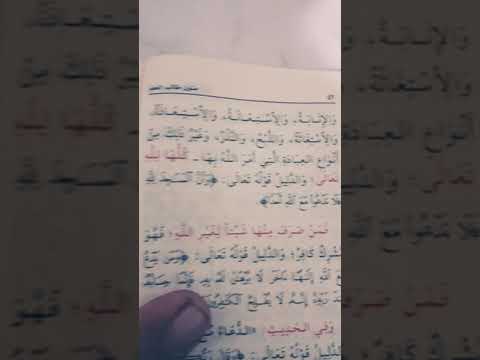 متون طالب العلم
وَالإِنَابَةُ، وَالِاسْتِعَانَةُ، وَالِاسْتِعَاذَةُ،
وَالِاسْتِغَاثَةُ، وَالذَّبْحُ، وَالنَّذْرُ، وَغَيْرُ ذَلِكَ مِنْ
أَنْوَاعِ العِبَادَةِ الَّتِي أَمَرَ اللَّهُ بِهَا - كُلُّهَا لِلَّهِ
تَعَالَى؛ وَالدَّلِيلُ قَوْلُهُ تَعَالَى: ﴿وَأَنَّ الْمَسَاجِدَ لِلَّهِ
فَلَا تَدْعُوا مَعَ اللَّهِ أَحَدًا﴾
فَمَنْ صَرَفَ مِنْهَا شَيْئاً لِغَيْرِ اللَّهِ؛ فَهُوَ
مُشْرِكٌ كَافِرٌ؛ وَالدَّلِيلُ قَوْلُهُ تَعَالَى: ﴿وَمَن يَدْعُ
مَعَ اللَّهِ إِلَهًا آخَرَ لَا بُرْهَانَ لَهُ بِهِ فَإِنَّمَا حِسَابُهُ
عِندَ رَبِّهِ إِنَّهُ لَا يُفْلِحُ الْكَافِرُونَ﴾
وَفِي الحَدِيثِ: «الدُّعَاءُ
وَالدَّلِيلُ قَوْلُهُ تَعَالَى: ﴿وَقَالَ